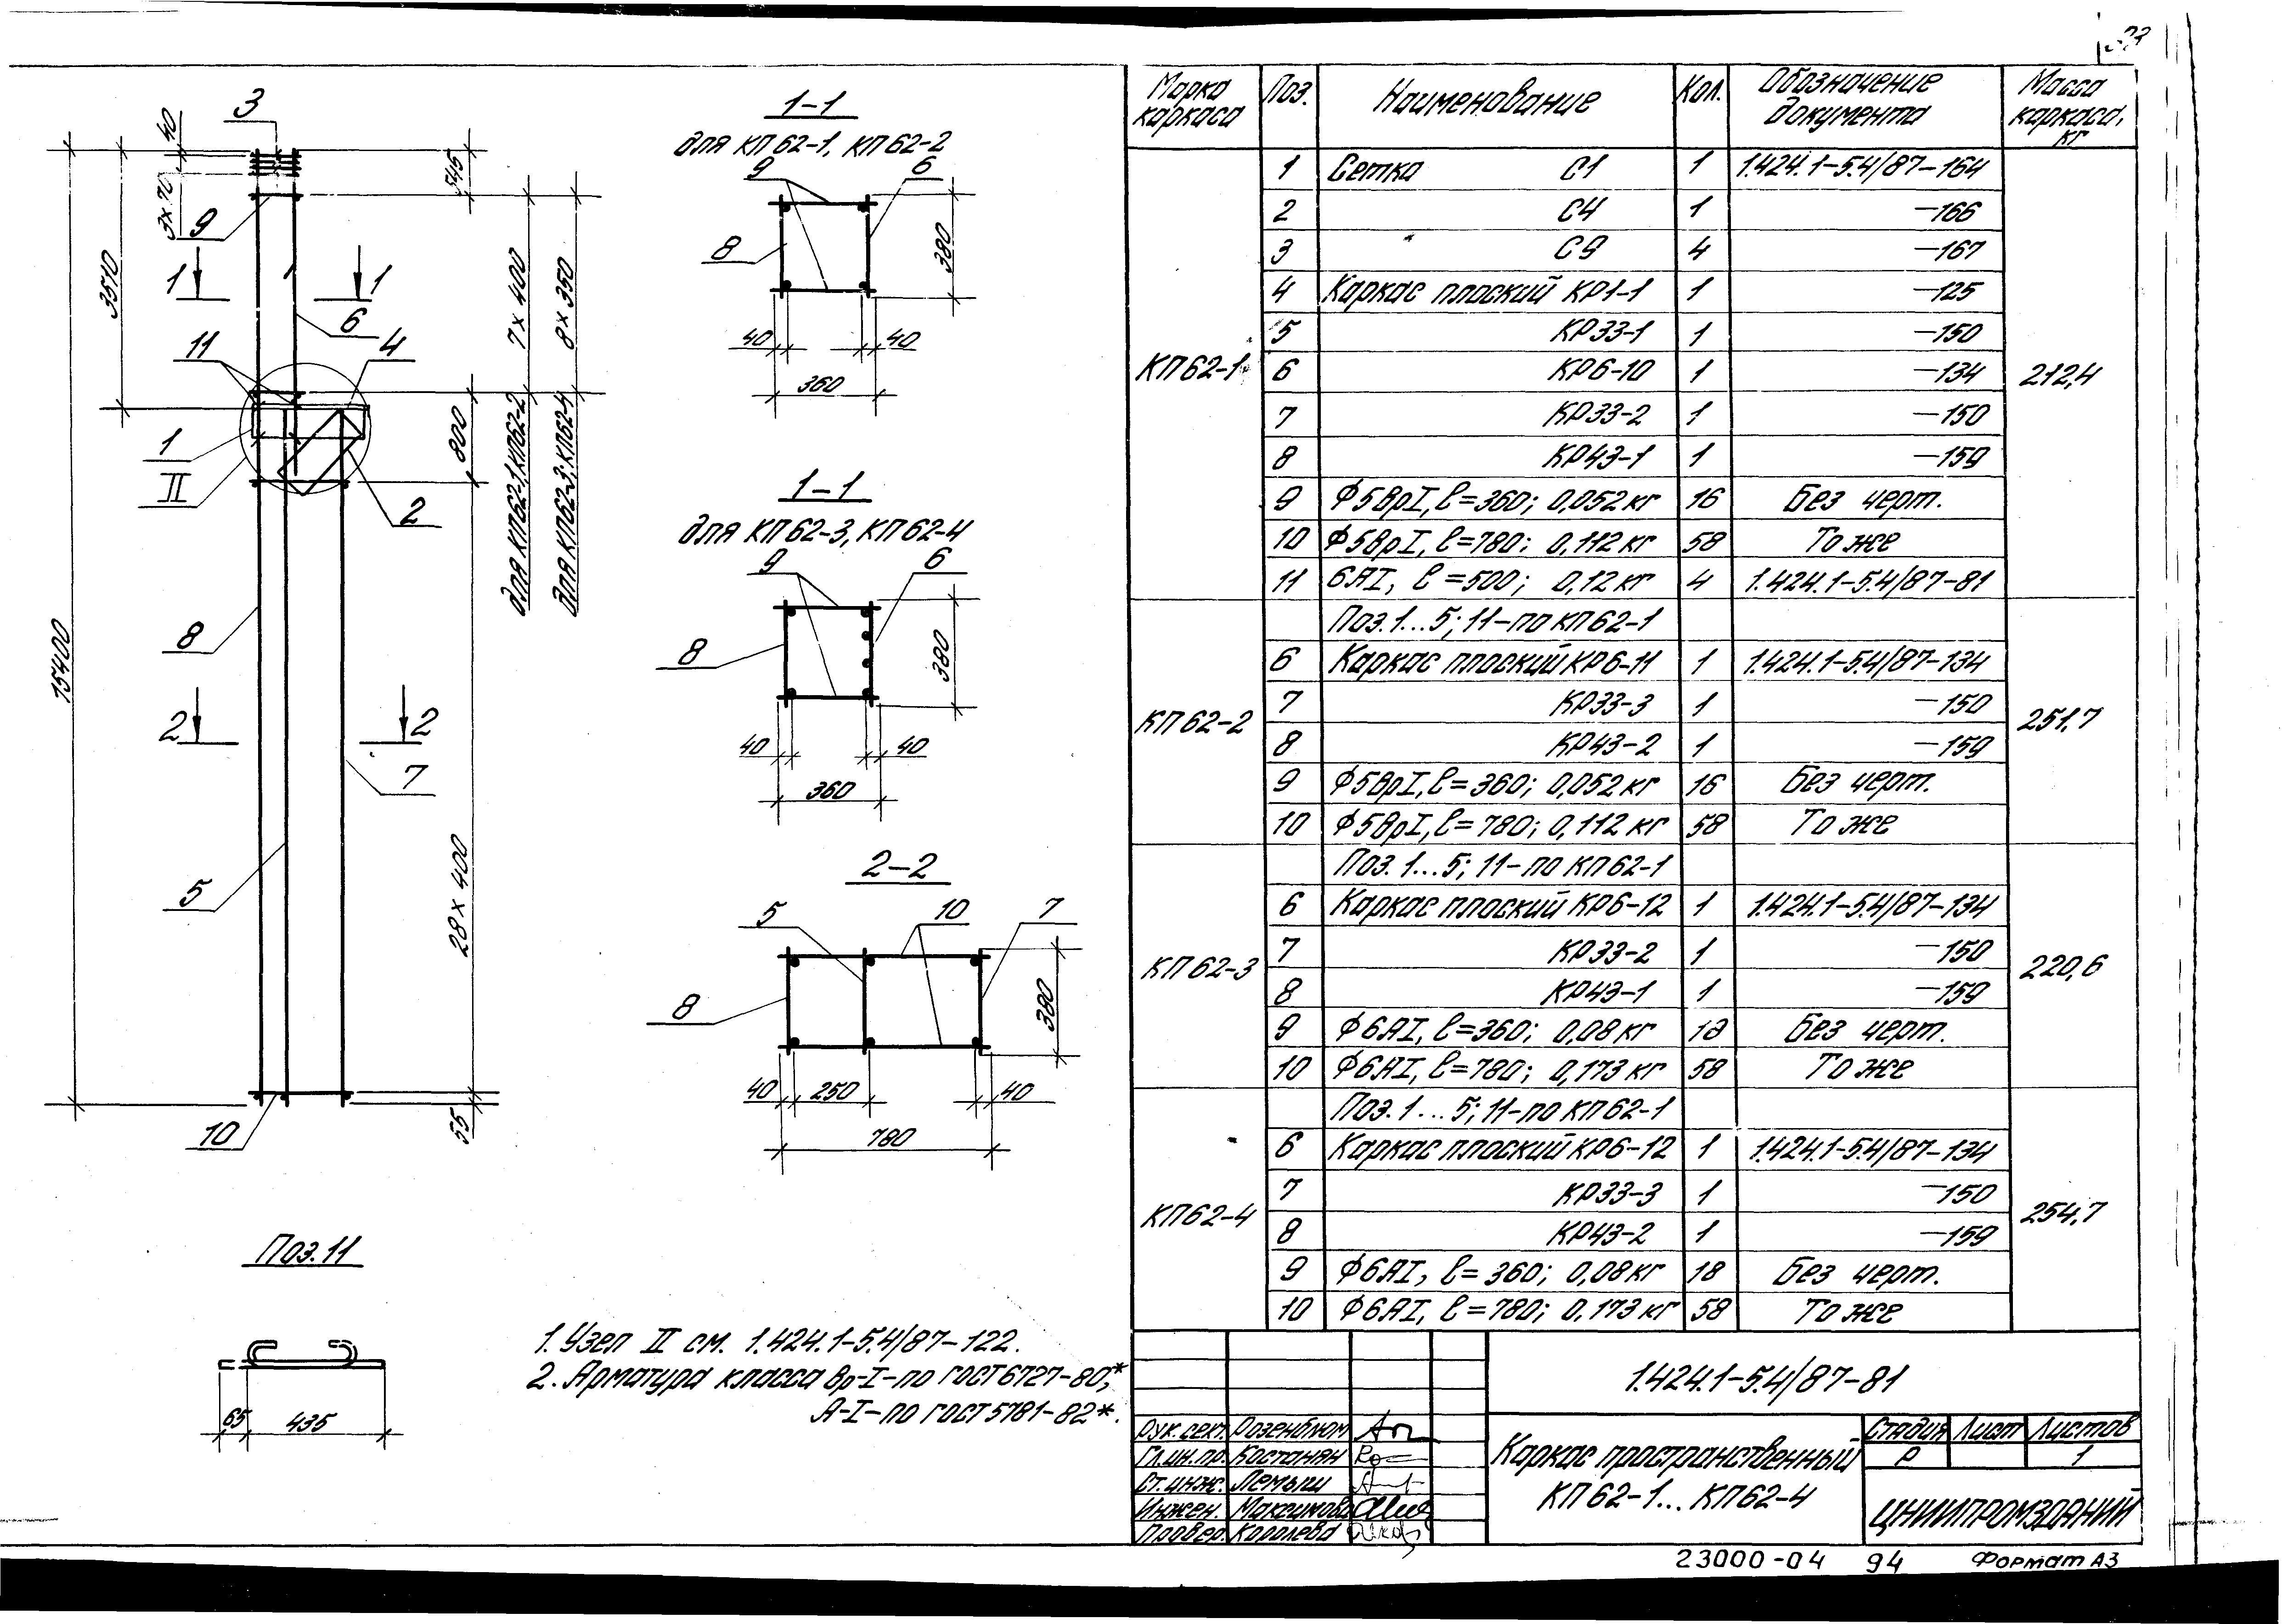 3
40
3×70
545
9
3510
1
1
6
11
4
7×400
8×350
для КП62-1, КП62-2
для КП62-3; КП62-4
1
II
800
2
15400
8
2
2
7
5
28×400
10
55
1-1
для КП62-1, КП62-2
9
6
8
380
40
40
360
1-1
для КП62-3, КП62-4
9
6
8
380
40
40
360
2-2
5
10
7
8
380
40
250
40
780
Поз.11
65
435
1. Узел II см. 1.424.1-5.4/87-122.
2. Арматура класса Вр-I-по ГОСТ 6727-80,*
А-I-по ГОСТ 5781-82*.
Марка каркаса Поз. Наименование Кол. Обозначение документа Масса каркаса, кг
КП62-1 212,4
1 Сетка С1 1 1.424.1-5.4/87-164
2 С4 1 -166
3 С9 4 -167
4 Каркас плоский КР1-1 1 -125
5 КР33-1 1 -150
6 КР6-10 1 -134
7 КР33-2 1 -150
8 КР43-1 1 -159
9 Ф5ВрI, l=360; 0,052кг 16 Без черт.
10 Ф5ВрI, l=780; 0,112кг 58 То же
11 6АI, l=500; 0,12кг 4 1.424.1-5.4/87-81
КП62-2 251,7
Поз.1...5; 11-по КП62-1
6 Каркас плоский КР6-11 1 1.424.1-5.4/87-134
7 КР33-3 1 -150
8 КР43-2 1 -159
9 Ф5ВрI, l=360; 0,052кг 16 Без черт.
10 Ф5ВрI, l=780; 0,112кг 58 То же
КП62-3 220,6
Поз. 1...5; 11-по КП62-1
6 Каркас плоский КР6-12 1 1.424.1-5.4/87-134
7 КР33-2 1 -150
8 КР43-1 1 -159
9 Ф6АI, l=360; 0,08кг 18 Без черт.
10 Ф6АI, l=780; 0,173кг 58 То же
КП62-4 254,7
Поз.1...5; 11-по КП62-1
6 Каркас плоский КР6-12 1 1.424.1-5.4/87-134
7 КР33-3 1 -150
8 КР43-2 1 -159
9 Ф6АI, l=360; 0,08кг 18 Без черт.
10 Ф6АI, l=780; 0,173кг 58 То же
1.424.1-5.4/87-81
Рук.сект. Розенблюм
Гл.ин.пр. Костанян
Ст.инж. Лемыш
Инжен. Максимова
Провер. Королева
Каркас пространственный
КП62-1...КП62-4
Стадия Лист Листов
Р 1
ЦНИИПРОМЗДАНИЙ
23000-04 94 Формат А3